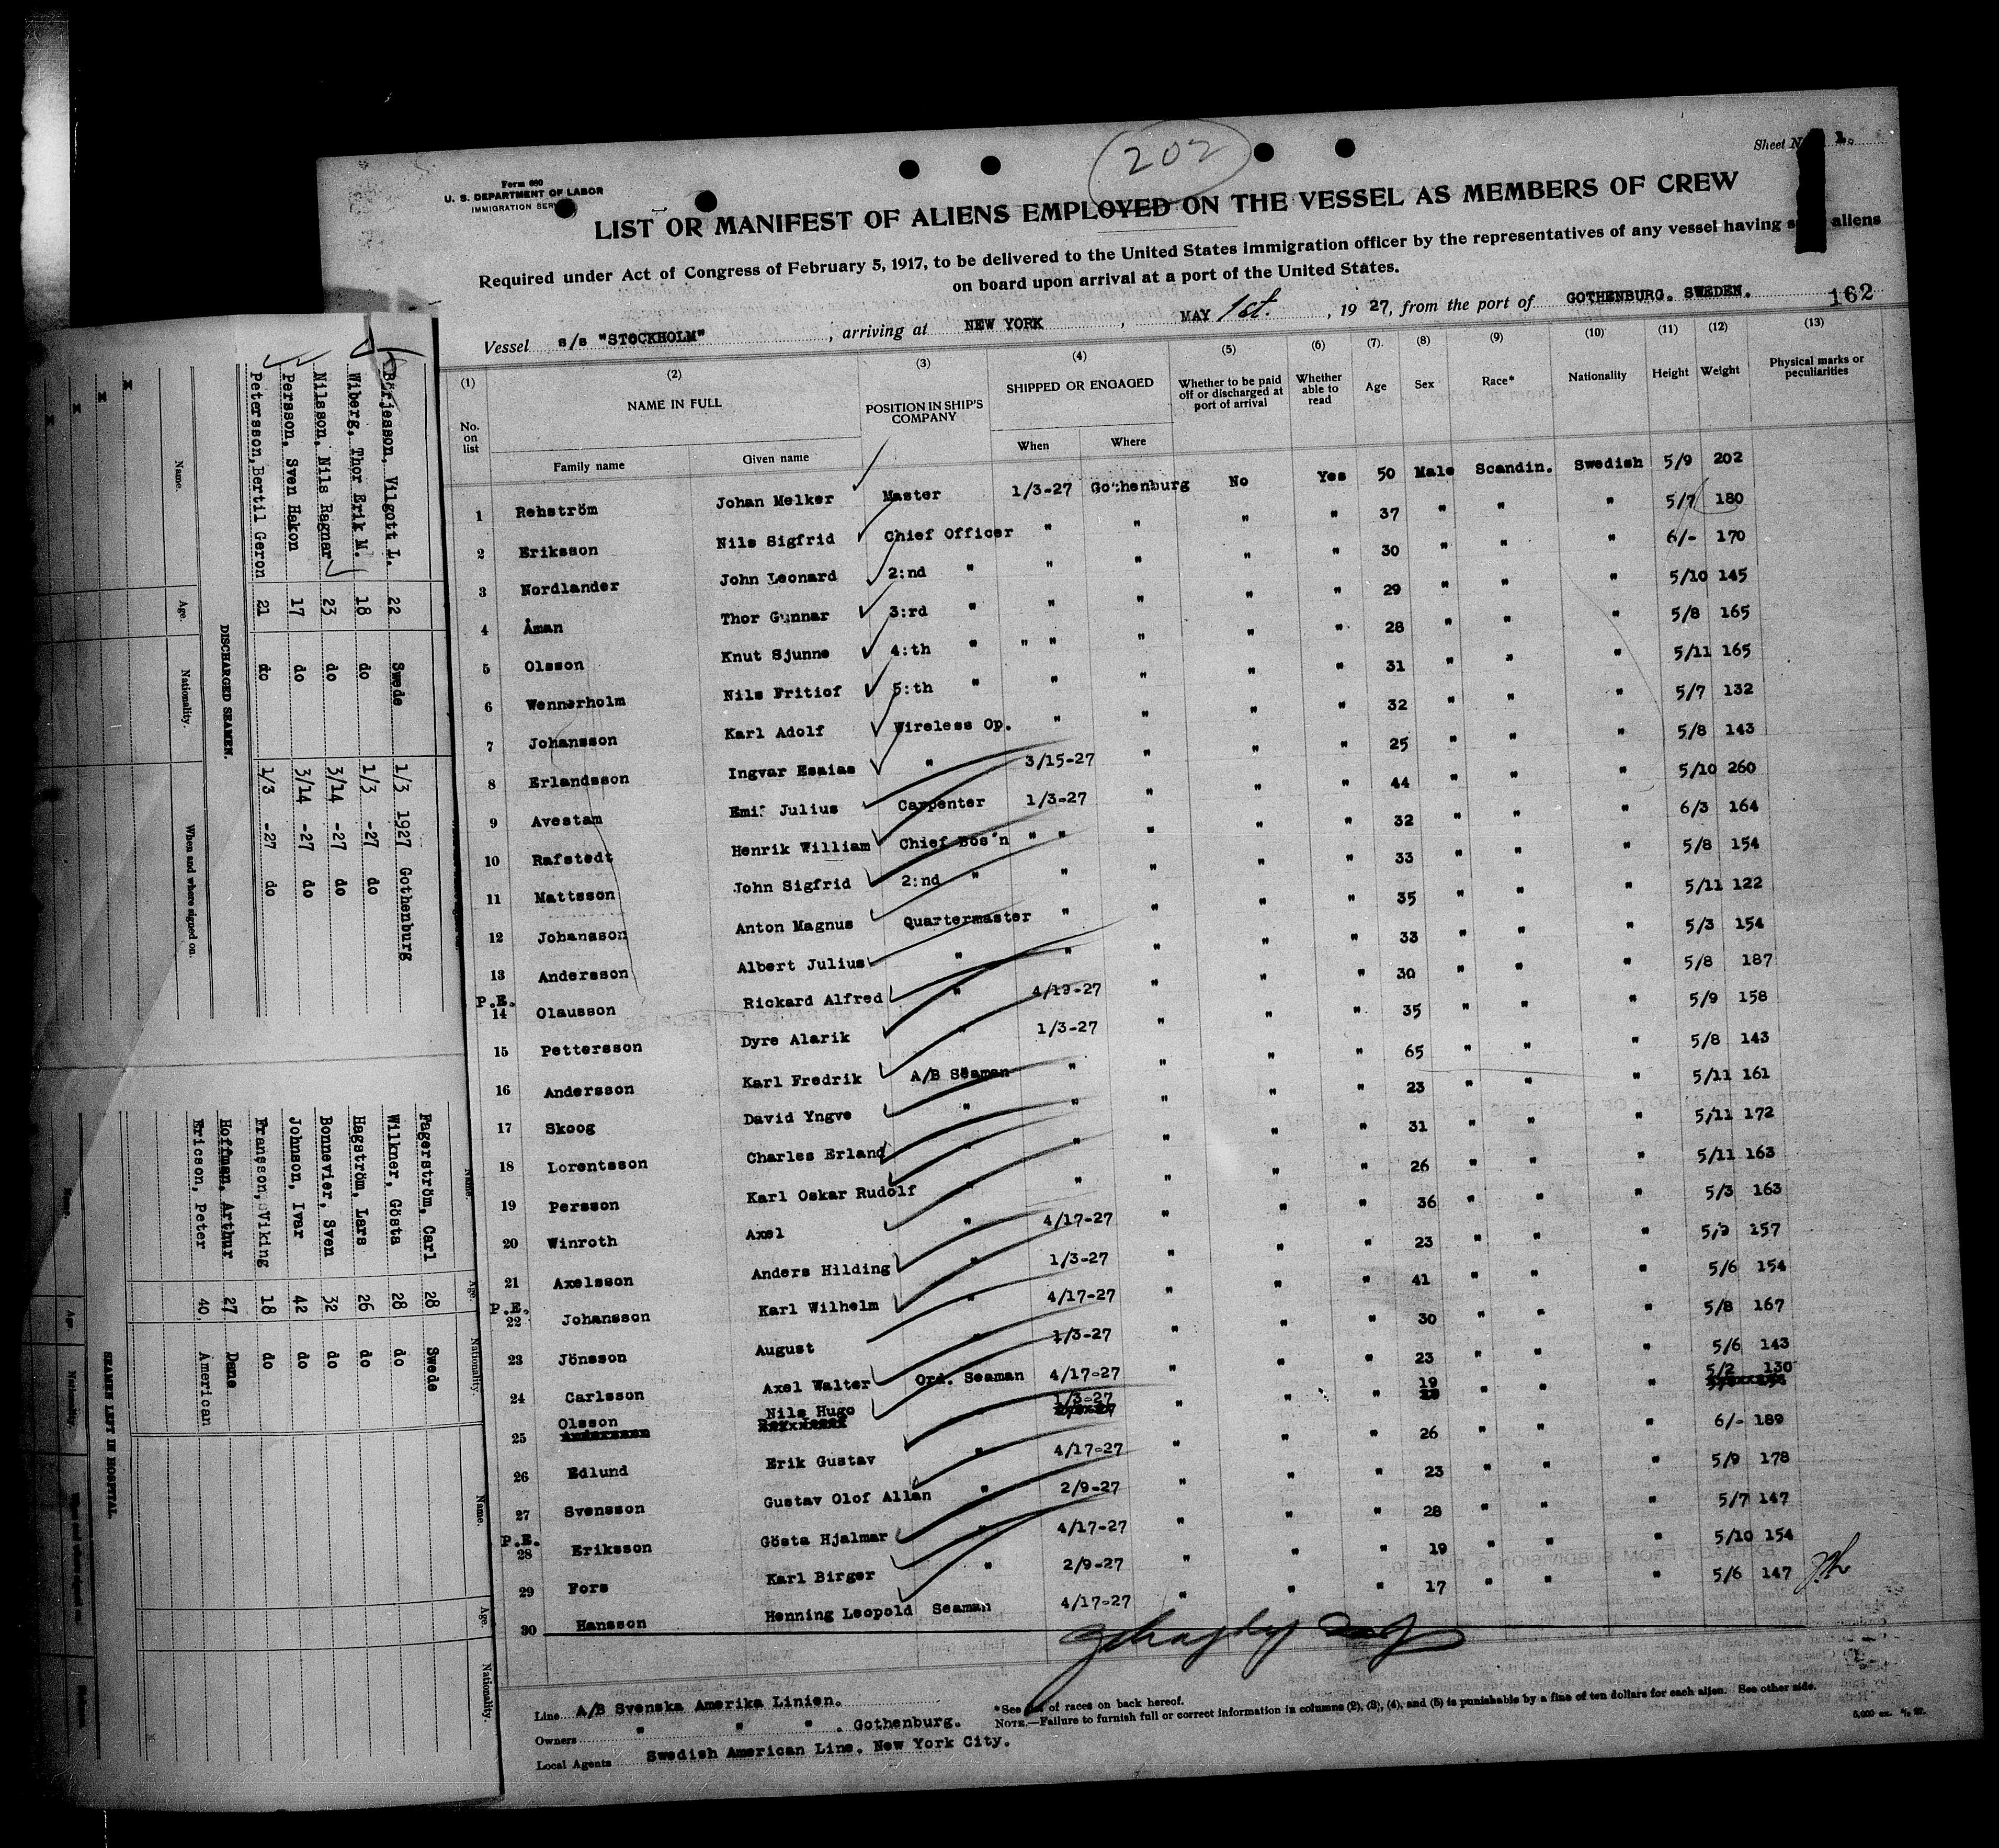 202
Sheet No. 1.
Form 680
U. S. DEPARTMENT OF LABOR
IMMIGRATION SERVICE
LIST OR MANIFEST OF ALIENS EMPLOYED ON THE VESSEL AS MEMBERS OF CREW
Required under Act of Congress of February 5, 1917, to be delivered to the United States immigration officer by the representatives of any vessel having such aliens
on board upon arrival at a port of the United States.
Vessel s/s "STOCKHOLM", arriving at NEW YORK, MAY 1st., 1927, from the port of GOTHENBURG. SWEDEN. 162
(1) (2) (3) (4) (5) (6) (7) (8) (9) (10) (11) (12) (13)
No. on list NAME IN FULL POSITION IN SHIP'S COMPANY SHIPPED OR ENGAGED Whether to be paid off or discharged at port of arrival Whether able to read Age Sex Race* Nationality Height Weight Physical marks or peculiarities
Family name Given name When Where
1 Rehström Johan Melker Master 1/3-27 Gothenburg No Yes 50 Male Scandin. Swedish 5/9 202
2 Eriksson Nils Sigfrid Chief Officer " " " " 37 " " " 5/7 180
3 Nordlander John Leonard 2:nd " " " " " 30 " " " 6/- 170
4 Åman Thor Gunnar 3:rd " " " " " 29 " " " 5/10 145
5 Olsson Knut Sjunne 4:th " " " " " " 28 " " " 5/8 165
6 Wennerholm Nils Fritiof 5:th " " " " " 31 " " " 5/11 165
7 Johansson Karl Adolf Wireless Op. " " " " 32 " " " 5/7 132
8 Erlandsson Ingvar Esaias " 3/15-27 " " " 25 " " " 5/8 143
9 Avestam Emil Julius Carpenter 1/3-27 " " " 44 " " " 5/10 260
10 Rafstedt Henrik William Chief Bos'n " " " " " 32 " " " 6/3 164
11 Mattsson John Sigfrid 2:nd " " " " " 33 " " " 5/8 154
12 Johansson Anton Magnus Quartermaster " " " " 35 " " " 5/11 122
13 Andersson Albert Julius " " " " " 33 " " " 5/3 154
P.E. 14 Olausson Rickard Alfred " 4/19-27 " " " 30 " " " 5/8 187
15 Pettersson Dyre Alarik " 1/3-27 " " " 35 " " " 5/9 158
16 Andersson Karl Fredrik A/B Seaman " " " " 65 " " " 5/8 143
17 Skoog David Yngve " " " " " 23 " " " 5/11 161
18 Lorentsson Charles Erland " " " " " 31 " " " 5/11 172
19 Persson Karl Oskar Rudolf " " " " " 26 " " " 5/11 163
20 Winroth Axel " 4/17-27 " " " 36 " " " 5/3 163
21 Axelsson Anders Hilding " 1/3-27 " " " 23 " " " 157
P.E. 22 Johansson Karl Wilhelm " 4/17-27 " " " 41 " " " 5/6 154
23 Jönsson August " 1/3-27 " " " 30 " " " 5/8 167
24 Carlsson Axel Walter Ord. Seaman 4/17-27 " " " 23 " " " 5/6 143
25 Olsson Nils Hugo " 1/3-27 " " " 19 " " " 5/2 130
26 Edlund Erik Gustav " 4/17-27 " " " 26 " " " 6/- 189
27 Svensson Gustav Olof Allan " 2/9-27 " " " 23 " " " 5/9 178
P.E. 28 Eriksson Gösta Hjalmar " 4/17-27 " " " 28 " " " 5/7 147
29 Fors Karl Birger " 2/9-27 " " " 19 " " " 5/10 154
30 Hansson Henning Leopold Seaman 4/17-27 " " " 17 " " " 5/6 147
Line A/B Svenska Amerika Linien.
Owners " " " . Gothenburg.
Local Agents Swedish American Line. New York City.
*See list of races on back hereof.
NOTE.—Failure to furnish full or correct information in columns (2), (3), (4), and (5) is punishable by a fine of ten dollars for each alien. See other side.
Börjesson, Vilgott L. 22 Swede 1/3 1927 Gothenburg
Wiberg, Thor Erik M. 18 do 1/3 -27 do
Nilsson, Nils Ragnar 23 do 3/14 -27 do
Persson, Sven Hakon 17 do 3/14 -27 do
Petersson, Bertil Geron 21 do 1/3 -27 do
DISCHARGED SEAMEN.
Name. Age. Nationality. When and where signed on.
Name. Age. Nationality.
Fagerström, Carl 28 Swede
Wilkner, Gösta 28 do
Hagström, Lars 26 do
Bonnevier, Sven 32 do
Johnson, Ivar 42 do
Fransson, Viking 18 do
Hoffman, Arthur 27 Dane
Ericson, Peter 40. American
Name. Age. Nationality.
SEAMEN LEFT IN HOSPITAL
Name. Age. Nationality.